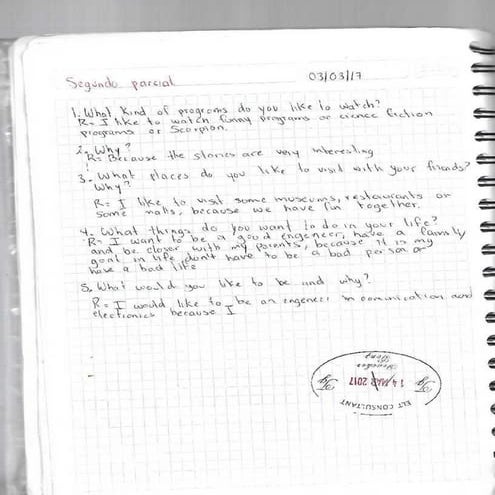 Segundo parcial 03/03/17
1. What kind of programs do you like to watch?
R= I like to watch funny programs or cience fiction
programs or Scorpion.
2. Why?
R= Because the stories are very interesting
3. What places do you like to visit with your friends?
Why?
R= I like to visit some museums, restaurants or
some malls, because we have fun together.
4. What things do you want to do in your life?
R= I want to be a good engeneer, have a family
and be closer with my parents, because it is my
goal in life don't have to be a bad person or
have a bad life
5. What would you like to be and why?
R= I would like to be an engeneer in comunication and
electronics because I
ELT CONSULTANT
14 MAR 2017